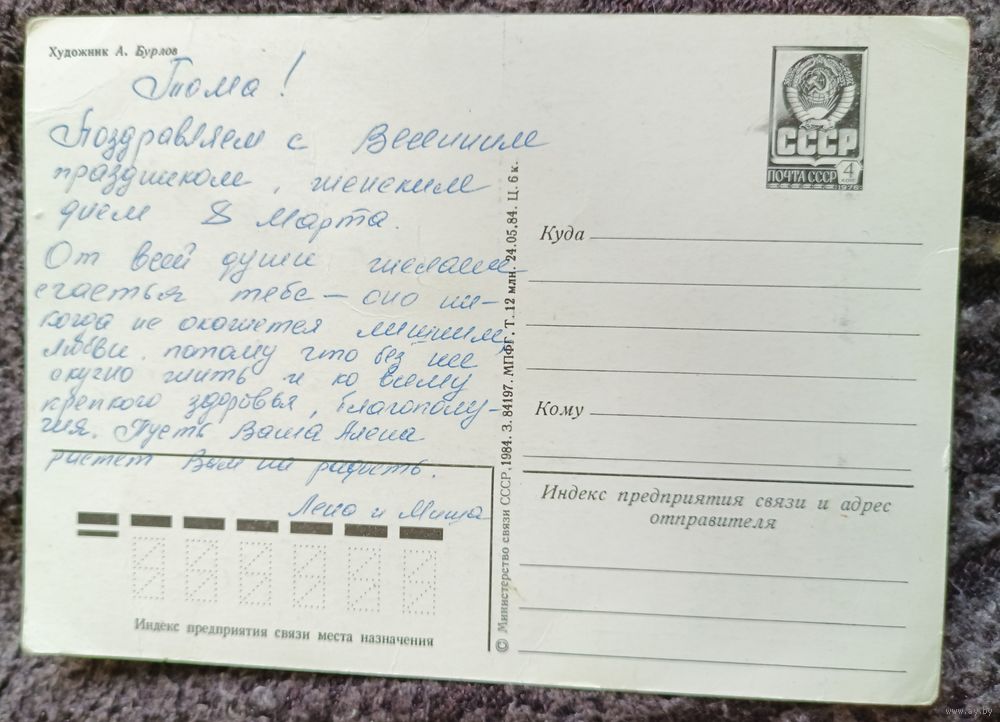 Художник А. Бурлов
Тома!
Поздравляем с Весенним
праздником, женским
днем 8 марта.
От всей души желаем
счастья тебе – оно ни-
когда не окажется лишним,
любви, потому что без нее
скучно жить и ко всему
крепкого здоровья, благополу-
чия. Пусть Ваша Алена
растет Вам на радость.
Лена и Миша
Индекс предприятия связи места назначения
© Министерство связи СССР, 1984. З. 84197. МПФГ. Т. 12 млн. 24.05.84. Ц. 6 к.
СССР
ПОЧТА СССР 4 коп
1978
Куда
Кому
Индекс предприятия связи и адрес
отправителя
www.ay.by